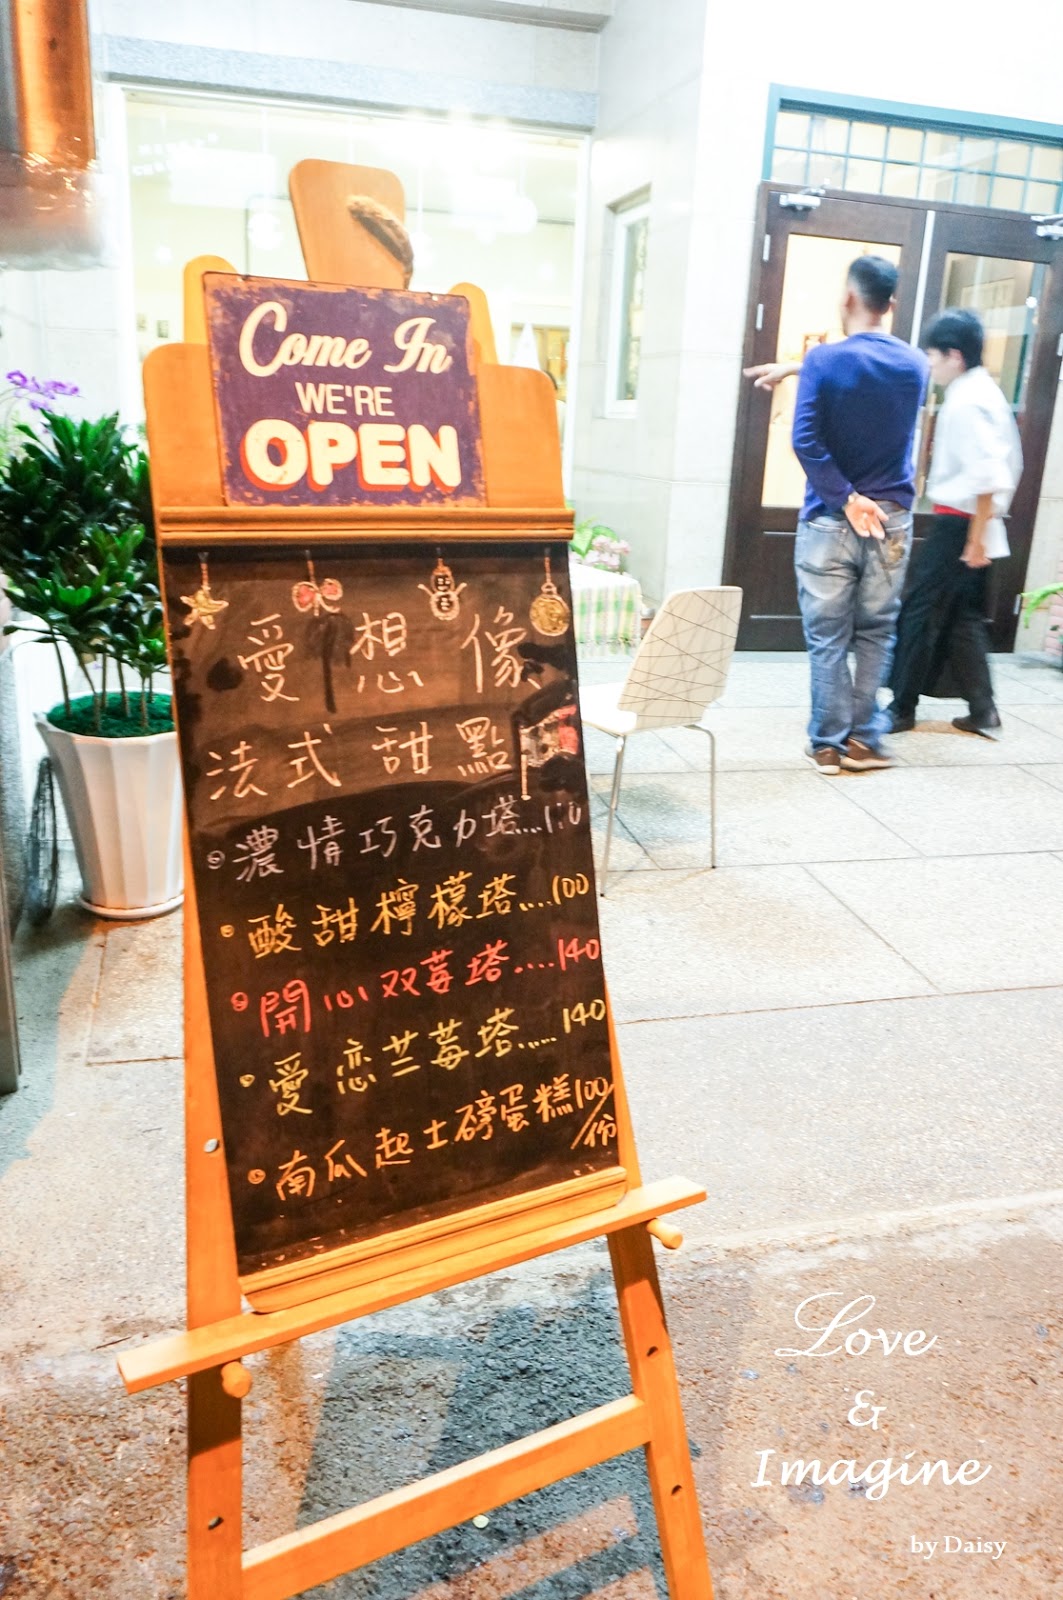 Come In
WE'RE
OPEN
愛想像
法式甜點
濃情巧克力塔....110
酸甜檸檬塔....100
開心双莓塔....140
愛恋兰莓塔.....140
南瓜起士磅蛋糕100/份
Love
&
Imagine
by Daisy